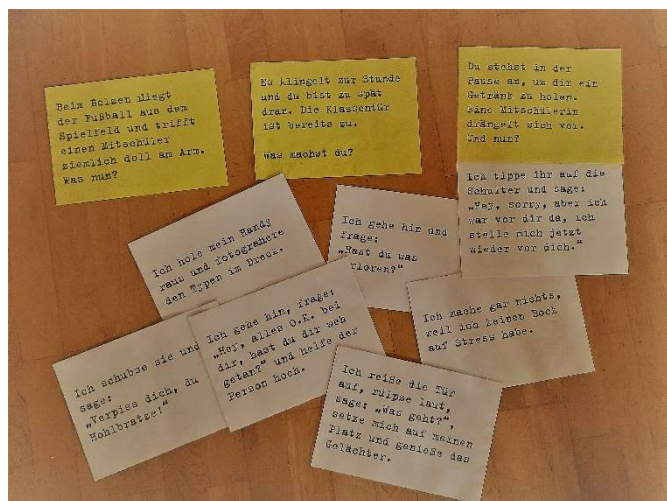 Beim Bolzen fliegt
der Fußball aus dem
Spielfeld und trifft
einen Mitschüler
ziemlich doll am Arm.
Was nun?
Es klingelt zur Stunde
und du bist zu spät
dran. Die Klassentür
ist bereits zu.
was machst du?
Du stehst in der
Pause an, um dir ein
Getränk zu holen.
Eine Mitschülerin
drängelt sich vor.
Und nun?
Ich tippe ihr auf die
Schulter und sage:
„Hey, sorry, aber ich
war vor dir da, ich
stelle mich jetzt
wieder vor dich.“
Ich hole mein Handy
raus und fotografiere
den Typen im Dreck.
Ich gehe hin und
frage:
„Hast du was
rloren?“
Ich mache gar nichts,
weil ich keinen Bock
auf Stress habe.
Ich gehe hin, frage:
„Hey, alles O.K. bei
dir, hast du dir weh
getan?“ und helfe der
Person hoch.
Ich schubse sie und
sage:
„Verpiss dich, du
Hohlbratze!“
Ich reiße die Tür
auf, rülpse laut,
sage: „Was geht?“,
setze mich auf meinen
Platz und genieße das
Gelächter.